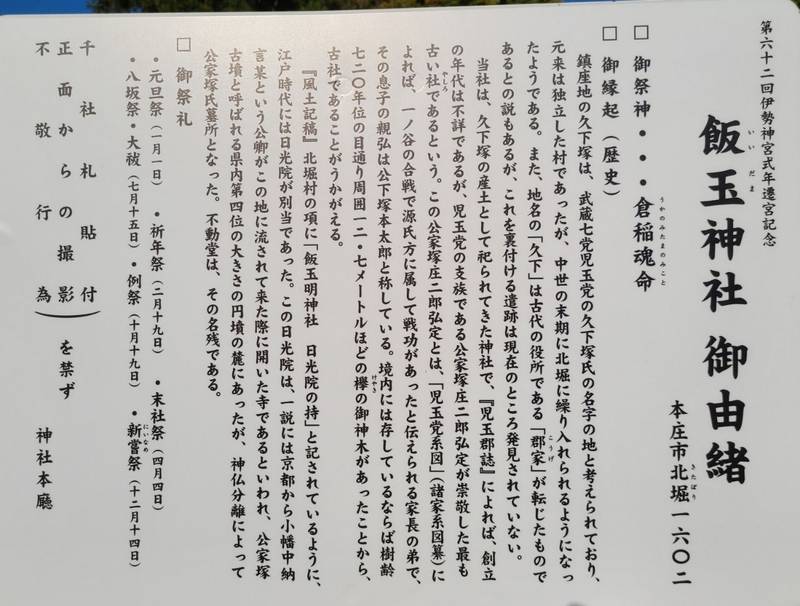 第六十二回伊勢神宮式年遷宮記念
飯玉神社 御由緒
本庄市北堀一六〇二
□ 御祭神・・・倉稲魂命
□ 御縁起（歴史）
鎮座地の久下塚は、武蔵七党児玉党の久下塚氏の名字の地と考えられており、
元来は独立した村であったが、中世の末期に北堀に繰り入れられるようになっ
たようである。また、地名の「久下」は古代の役所である「郡家」が転じたもので
あるとの説もあるが、これを裏付ける遺跡は現在のところ発見されていない。
当社は、久下塚の産土として祀られてきた神社で、『児玉郡誌』によれば、創立
の年代は不詳であるが、児玉党の支族である公家塚庄二郎弘定が崇敬した最も
古い社であるという。この公家塚庄二郎弘定とは、「児玉党系図」（諸家系図纂）に
よれば、一ノ谷の合戦で源氏方に属して戦功があったと伝えられる家長の弟で、
その息子の親弘は公下塚本太郎と称している。境内には存しているならば樹齢
七二〇年位の目通り周囲一二・七メートルほどの欅の御神木があったことから、
古社であることがうかがえる。
『風土記稿』北堀村の項に「飯玉明神社 日光院の持」と記されているように、
江戸時代には日光院が別当であった。この日光院は、一説には京都から小幡中納
言某という公卿がこの地に流されて来た際に開いた寺であるといわれ、公家塚
古墳と呼ばれる県内第四位の大きさの円墳の麓にあったが、神仏分離によって
公家塚氏墓所となった。不動堂は、その名残である。
□ 御祭礼
・元旦祭（一月一日） ・祈年祭（二月十九日） ・末社祭（四月四日）
・八坂祭・大祓（七月十五日）・例祭（十月十九日）・新嘗祭（十二月十四日）
千社札貼付
正面からの撮影
不敬行為
を禁ず
神社本廳